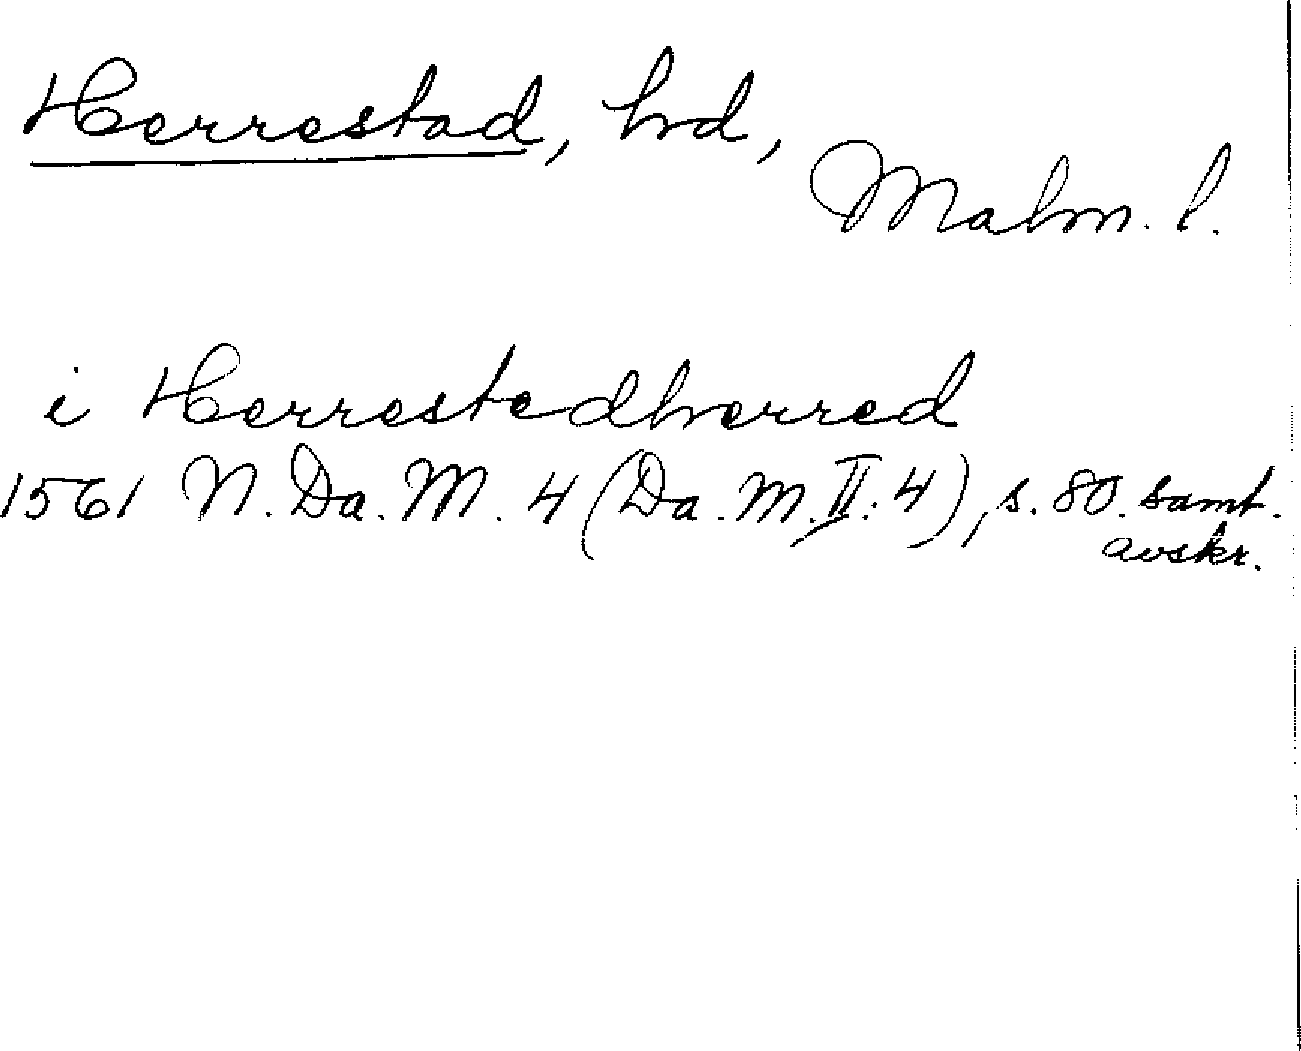 Herrestad, hd,
Malm. l.
i Herrestedherred
1561 N. Da. M. 4 (Da. M. II: 4), s. 80. samt.
avskr.